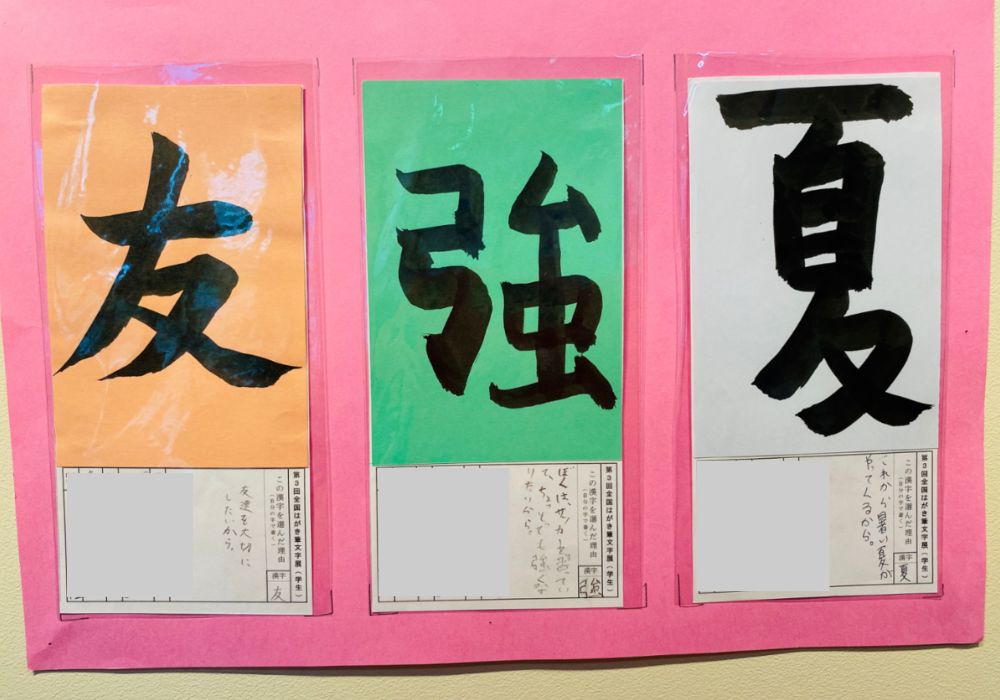 友
第3回全国はがき筆文字展(学生)
この漢字を選んだ理由
(自分の字で書く)
漢字
友
友達を大切に
したいから。
強
第3回全国はがき筆文字展(学生)
この漢字を選んだ理由
(自分の字で書く)
漢字
強
ぼくは、サッカーを習ってい
て、ちょっとでも強くな
りたいから。
夏
第3回全国はがき筆文字展(学生)
この漢字を選んだ理由
(自分の字で書く)
漢字
夏
これから暑い夏が
やってくるから。